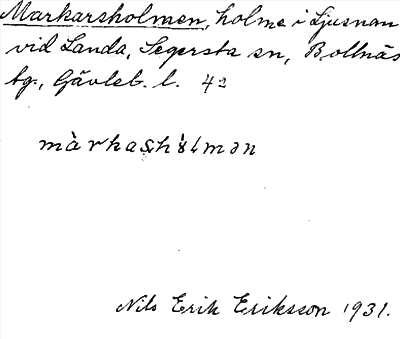 Markarsholmen, holme i Ljusnan
vid Landa, Segersta sn, Bollnäs
tg., Gävleb. l. 42
màrkasholmən
Nils Erik Eriksson 1931.